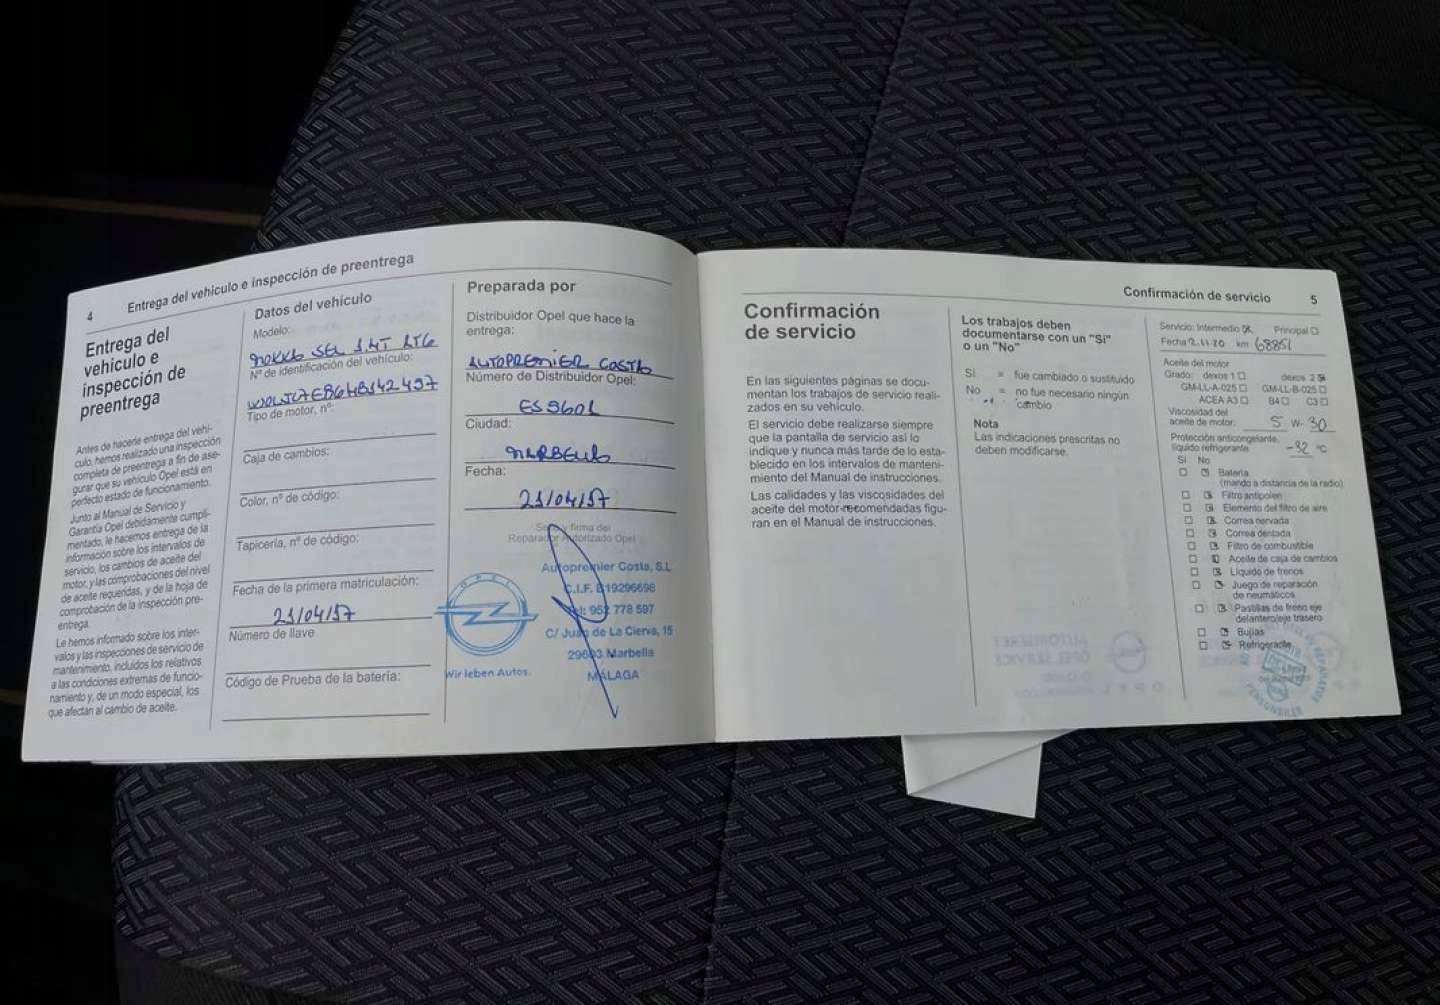 4 Entrega del vehículo e inspección de preentrega
Entrega del
vehículo e
inspección de
preentrega
Antes de hacerle entrega del vehí-
culo, hemos realizado una inspección
completa de preentrega a fin de ase-
gurar que su vehículo Opel está en
perfecto estado de funcionamiento.
Junto al Manual de Servicio y
Garantía Opel debidamente cumpli-
mentado, le hacemos entrega de la
información sobre los intervalos de
servicio, los cambios de aceite del
motor, y las comprobaciones del nivel
de aceite requeridas, y de la hoja de
comprobación de la inspección pre-
entrega.
Le hemos informado sobre los inter-
valos y las inspecciones de servicio de
mantenimiento, incluidos los relativos
a las condiciones extremas de funcio-
namiento y, de un modo especial, los
que afectan al cambio de aceite.
Datos del vehículo
Modelo:
MOKKA SEL 1.4T
Nº de identificación del vehículo:
Tipo de motor, nº:
Caja de cambios:
Color, nº de código:
Tapicería, nº de código:
Fecha de la primera matriculación:
21/04/17
Número de llave
Código de Prueba de la batería:
Preparada por
Distribuidor Opel que hace la
entrega:
AUTOPREMIER COSTA
Número de Distribuidor Opel:
ES5601
Ciudad:
MARBELLA
Fecha:
21/04/17
Sello y firma del
Reparador Autorizado Opel
OPEL
Wir leben Autos.
Autopremier Costa, S.L
C.I.F. B19296698
Tel: 952 778 597
C/ Juan de La Cierva, 15
29603 Marbella
MÁLAGA
Confirmación de servicio 5
Confirmación
de servicio
En las siguientes páginas se docu-
mentan los trabajos de servicio reali-
zados en su vehículo.
El servicio debe realizarse siempre
que la pantalla de servicio así lo
indique y nunca más tarde de lo esta-
blecido en los intervalos de manteni-
miento del Manual de instrucciones.
Las calidades y las viscosidades del
aceite del motor recomendadas figu-
ran en el Manual de instrucciones.
Los trabajos deben
documentarse con un "Sí"
o un "No"
Sí = fue cambiado o sustituido
No = no fue necesario ningún
cambio
Nota
Las indicaciones prescritas no
deben modificarse.
Servicio: Intermedio Principal
Fecha 2.11.20 km 68851
Aceite del motor
Grado: dexos 1 dexos 2
GM-LL-A-025 GM-LL-B-025
ACEA A3 B4 C3
Viscosidad del
aceite de motor: 5 W- 30
Protección anticongelante,
líquido refrigerante -32 °C
Sí No
Batería
(mando a distancia de la radio)
Filtro antipolen
Elemento del filtro de aire
Correa nervada
Correa dentada
Filtro de combustible
Aceite de caja de cambios
Líquido de frenos
Juego de reparación
de neumáticos
Pastillas de freno eje
delantero/eje trasero
Bujías
Refrigerante